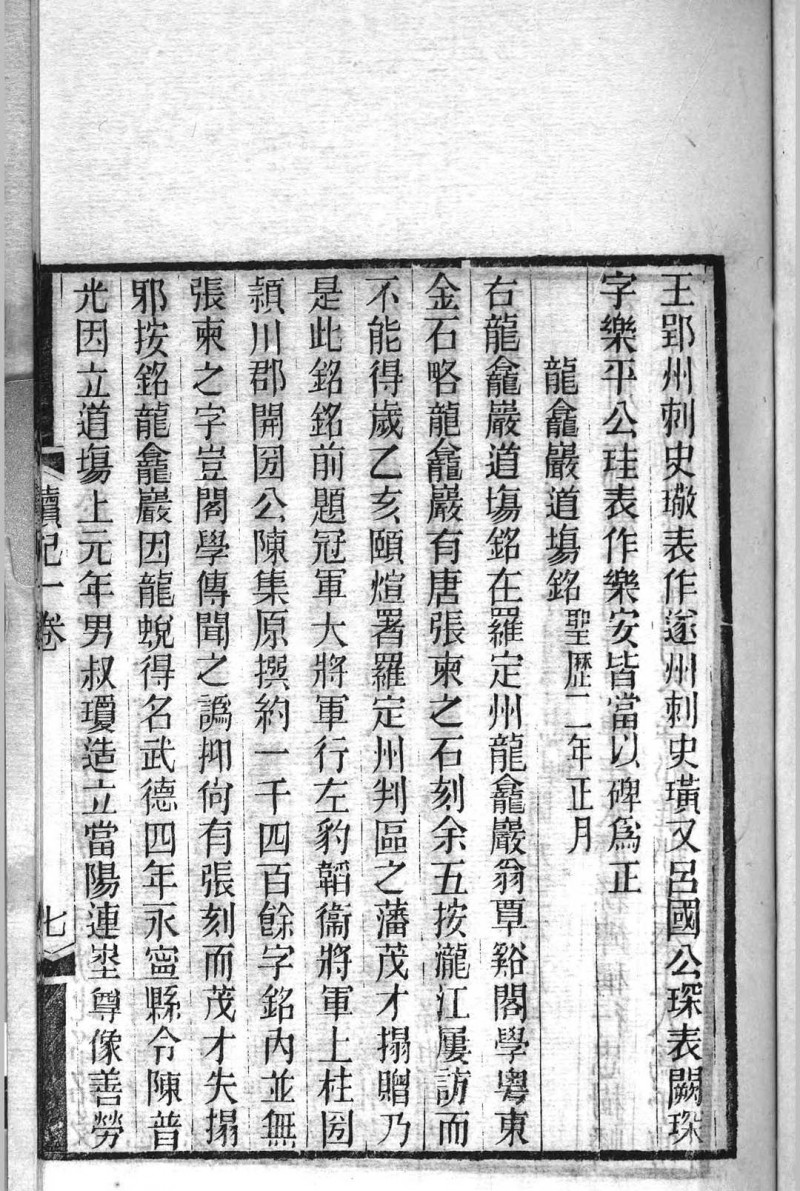 王郢州刺史璥表作遂州刺史璜又呂國公琛表闕琛
字樂平公珪表作樂安皆當以碑爲正
龍龕巖道塲銘聖歷二年正月
右龍龕巖道塲銘在羅定州龍龕巖翁覃谿閣學粵東
金石略龍龕巖有唐張柬之石刻余五按瀧江屢訪而
不能得歲乙亥頤煊署羅定州判區之藩茂才搨贈乃
是此銘銘前題冠軍大將軍行左豹韜衞將軍上柱圀
潁川郡開圀公陳集原撰約一千四百餘字銘內並無
張柬之字豈閣學傳聞之譌抑尙有張刻而茂才失搨
邪按銘龍龕巖因龍蛻得名武德四年永寧縣令陳普
光因立道塲上元年男叔瓊造立當陽連埊尊像善勞
讀記一卷
七